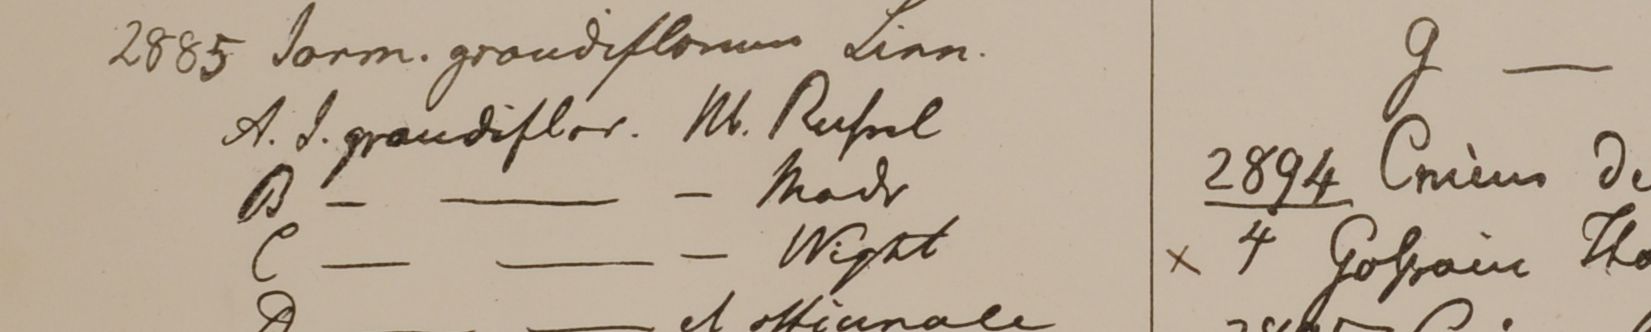 2885 Jasm. grandiflorum Linn.
A. J. grandiflor. Hb. Russel
B — —— — Madr
C — —— — Wight
D — —— et officinale
g —
2894 Cnicus De
× 4 Gossain Tha